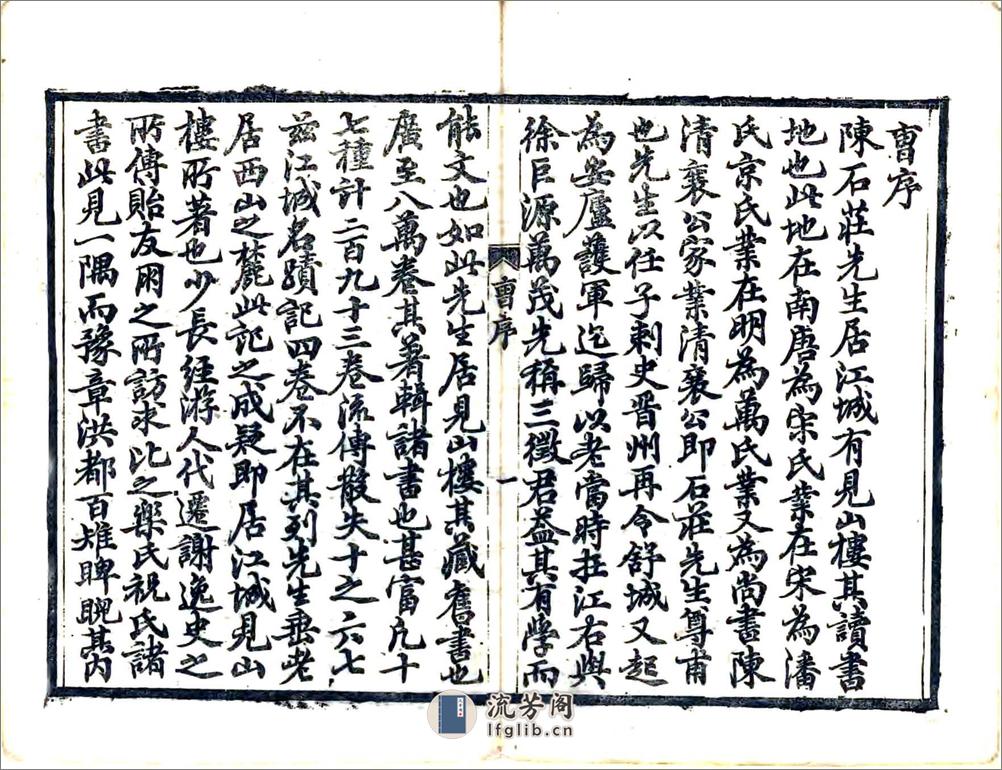 曹序
陳石莊先生居江城有見山樓其讀書
地也此地在南唐為宋氏業在宋為潘
氏京氏業在明為萬氏業又為尚書陳
清襄公家業清襄公即石莊先生尊甫
也先生以任子刺史晋州再令舒城又起
為安廬護軍迄歸以老當時在江右與
徐巨源萬茂先稱三徵君益其有學而
曹序
一
能文也如此先生居見山樓其藏舊書也
廣至八萬卷其著輯諸書也甚富凡十
七種計二百九十三卷流傳散失十之六七
茲江城名蹟記四卷不在其列先生垂老
居西山之麓此記之成疑即居江城見山
樓所著也少長經游人代遷謝逸史之
所傳貽友朋之所訪求比之樂氏祝氏諸
書此見一隅而豫章洪都百雉睥睨其內
流芳阁
lfglib.cn